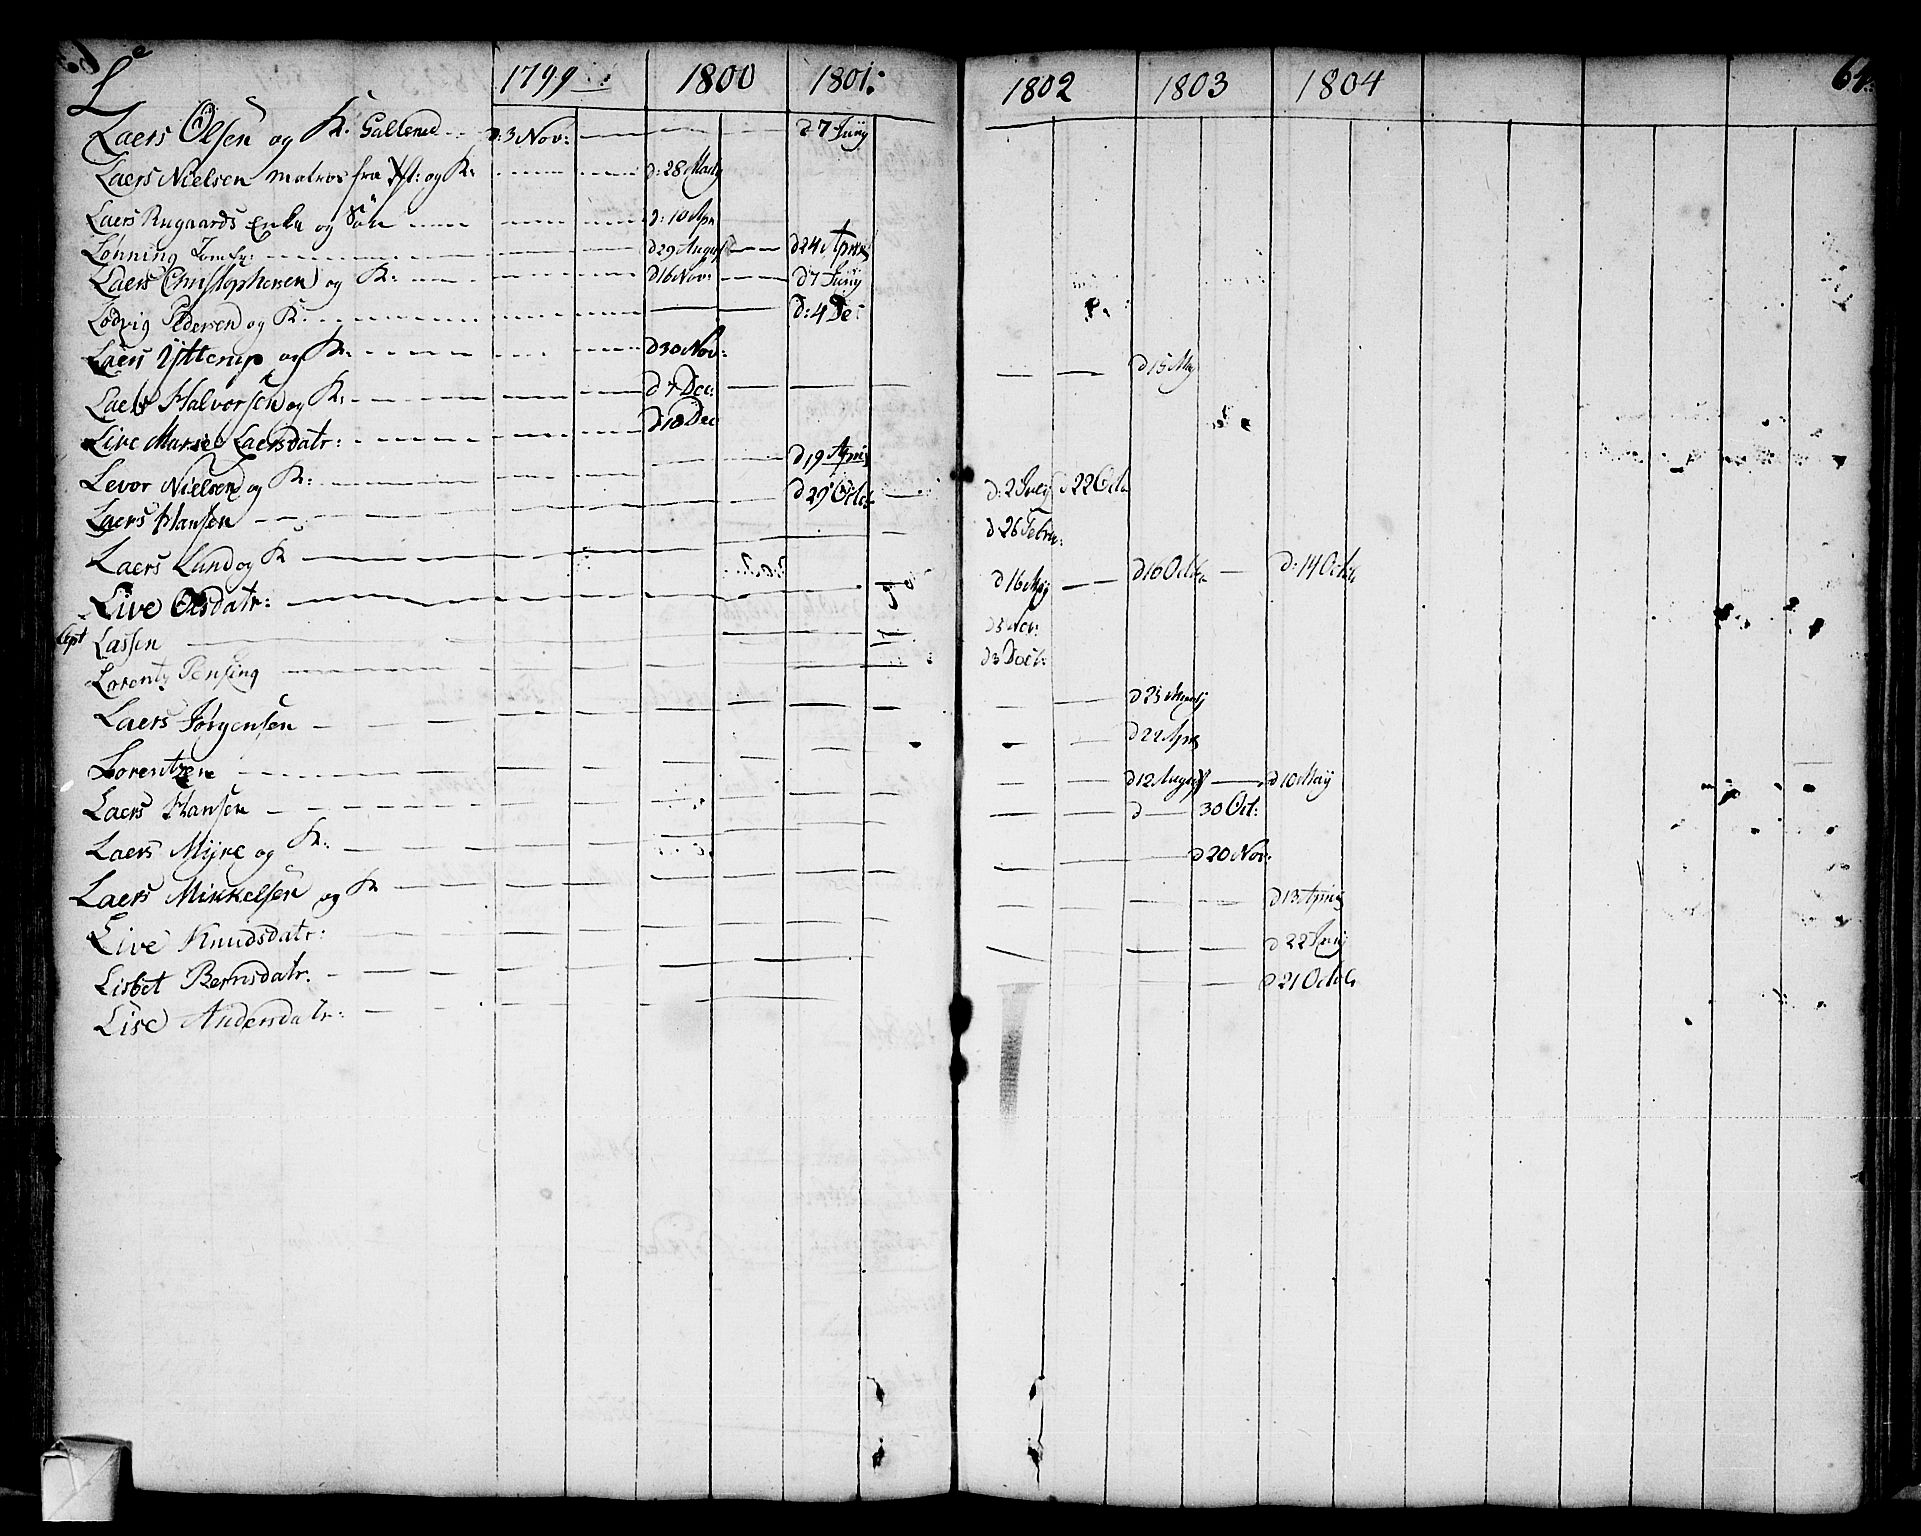 L
1799 1800 1801: 1802 1803 1804 64
Laers Olsen og K. d: 3 Nov: d 7 Junij
Laers Nielsen matros fra og K: d: 28 Martij
Laers Rugaards Enke og Sön d: 10 Apr
Lönning d 29 August d 24 April
Laers Christophersen og K: d 16 Nov: d 7 Junij
Lodvig Pedersen og K. d: 4 De:
Laers Ytterup og K: d 30 Nov: d 15 Maj
Laers Halvorsen og K: d 7 Dec:
Live Marie Laersdatr: d 10 Dec
Levor Nielsen og K: d 19 April
Laers Hansen d 29 Octob d: 2 Julij d 22 Oct
Laers Lund og K d 26 Febru:
Live Olsdatr: d 16 Maj d 10 Octb d: 14 Octob
Cpt Lassen d 3 Nov:
Lorentz d 3 Doct:
Laers Jörgensen d 23 Martij
Lorentzen d 22 April
Laers Hansen d 12 August d 10 Maij
Laers Mijre og K: d 30 Oct:
Laers Mikkelsen og K d 20 Nov:
Live Knudsdatr: d 13 April
Lisbet Berntsdatr: d 22 Junij
Lise Andersdatr: d 21 Octob